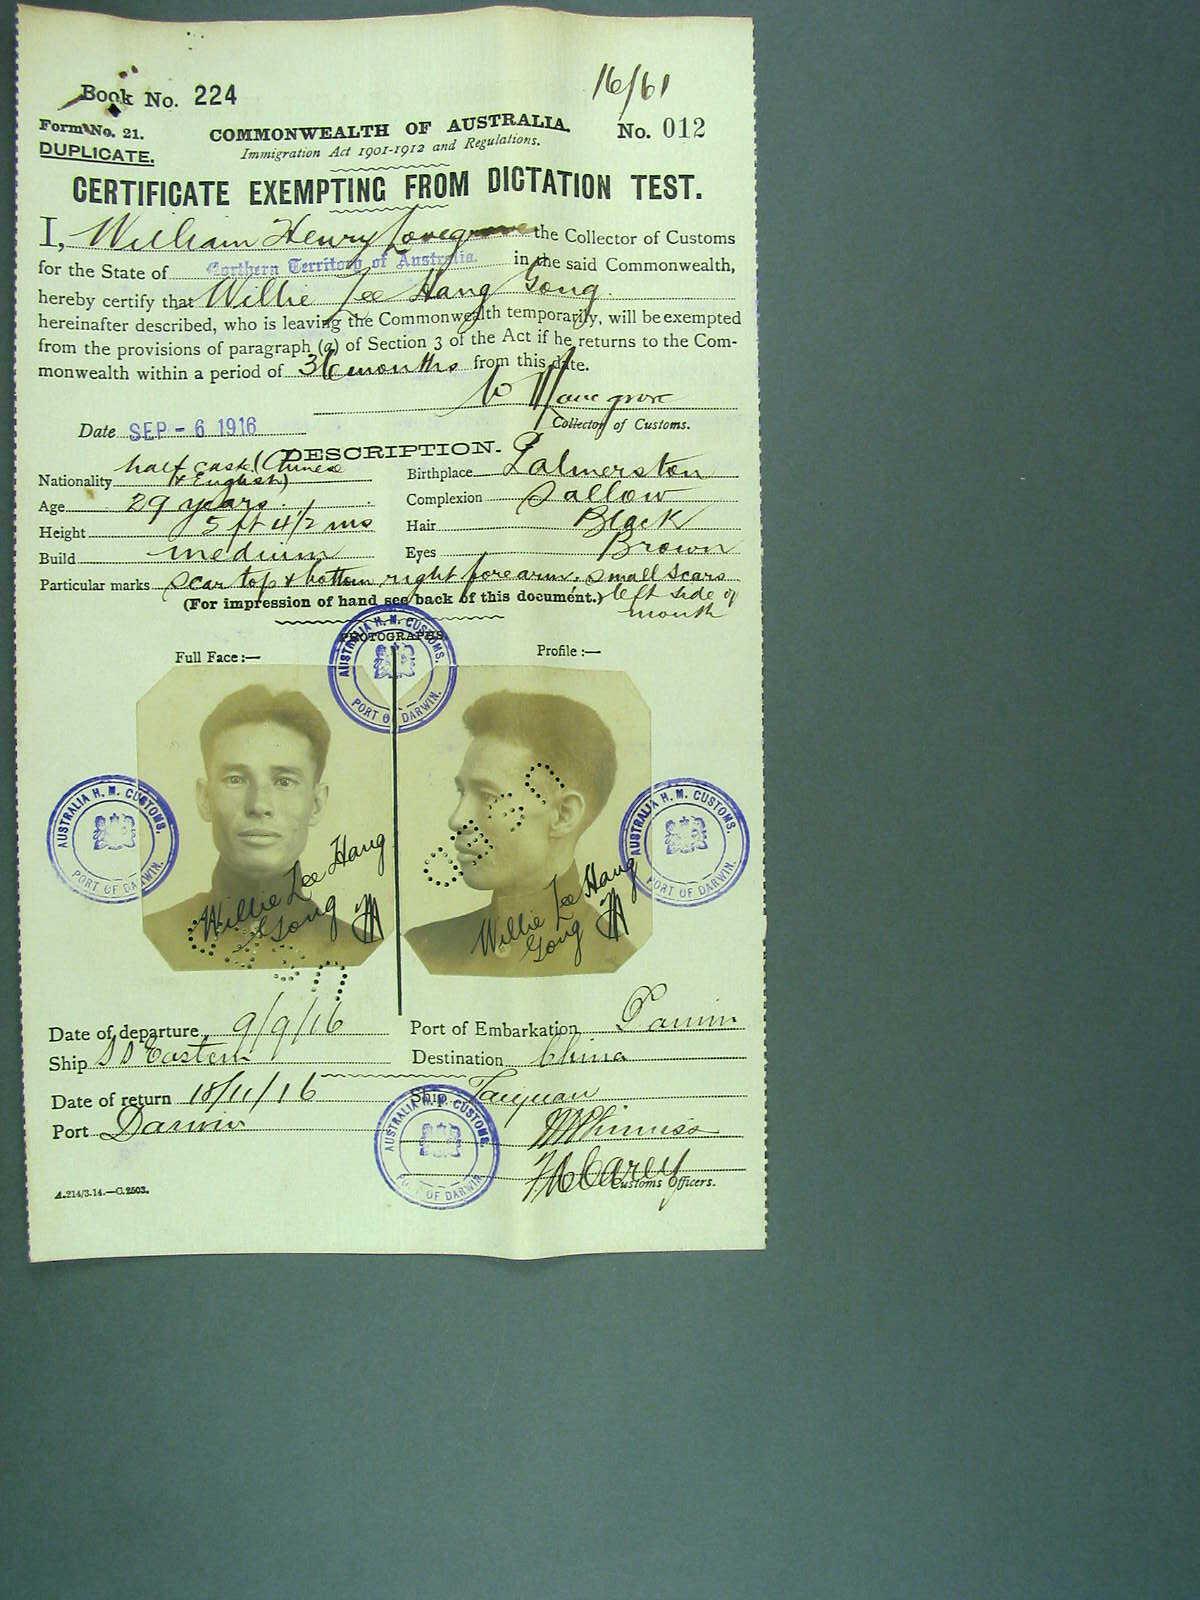 16/61
Book No. 224
Form No. 21.
DUPLICATE.
COMMONWEALTH OF AUSTRALIA.
No. 012
Immigration Act 1901-1912 and Regulations.
CERTIFICATE EXEMPTING FROM DICTATION TEST.
I, William Henry Lovegrove the Collector of Customs
for the State of Northern Territory of Australia. in the said Commonwealth,
hereby certify that Willie Lee Hang Gong.
hereinafter described, who is leaving the Commonwealth temporarily, will be exempted
from the provisions of paragraph (a) of Section 3 of the Act if he returns to the Com-
monwealth within a period of 36 months from this date.
W H Lovegrove
Collector of Customs.
Date SEP - 6 1916
DESCRIPTION.
Nationality half caste (Chinese & English)
Birthplace Palmerston
Age 29 years
Complexion Sallow
Height 5 ft 4 1/2 ins
Hair Black
Build medium
Eyes Brown
Particular marks scar top & bottom right forearm, small scars
left side of
mouth
(For impression of hand see back of this document.)
PHOTOGRAPHS.
Full Face :—
Profile :—
AUSTRALIA H. M. CUSTOMS.
PORT OF DARWIN.
AUSTRALIA H. M. CUSTOMS.
PORT OF DARWIN.
AUSTRALIA H. M. CUSTOMS.
PORT OF DARWIN.
Willie Lee Hang
Gong
Willie Lee Hang
Gong
Date of departure 9/9/16
Port of Embarkation Darwin
Ship SS Eastern
Destination China
Date of return 18/11/16
Ship Taiyuan
Port Darwin
AUSTRALIA H. M. CUSTOMS.
PORT OF DARWIN.
Carey
Customs Officers.
A.214/3.14.—C.2503.